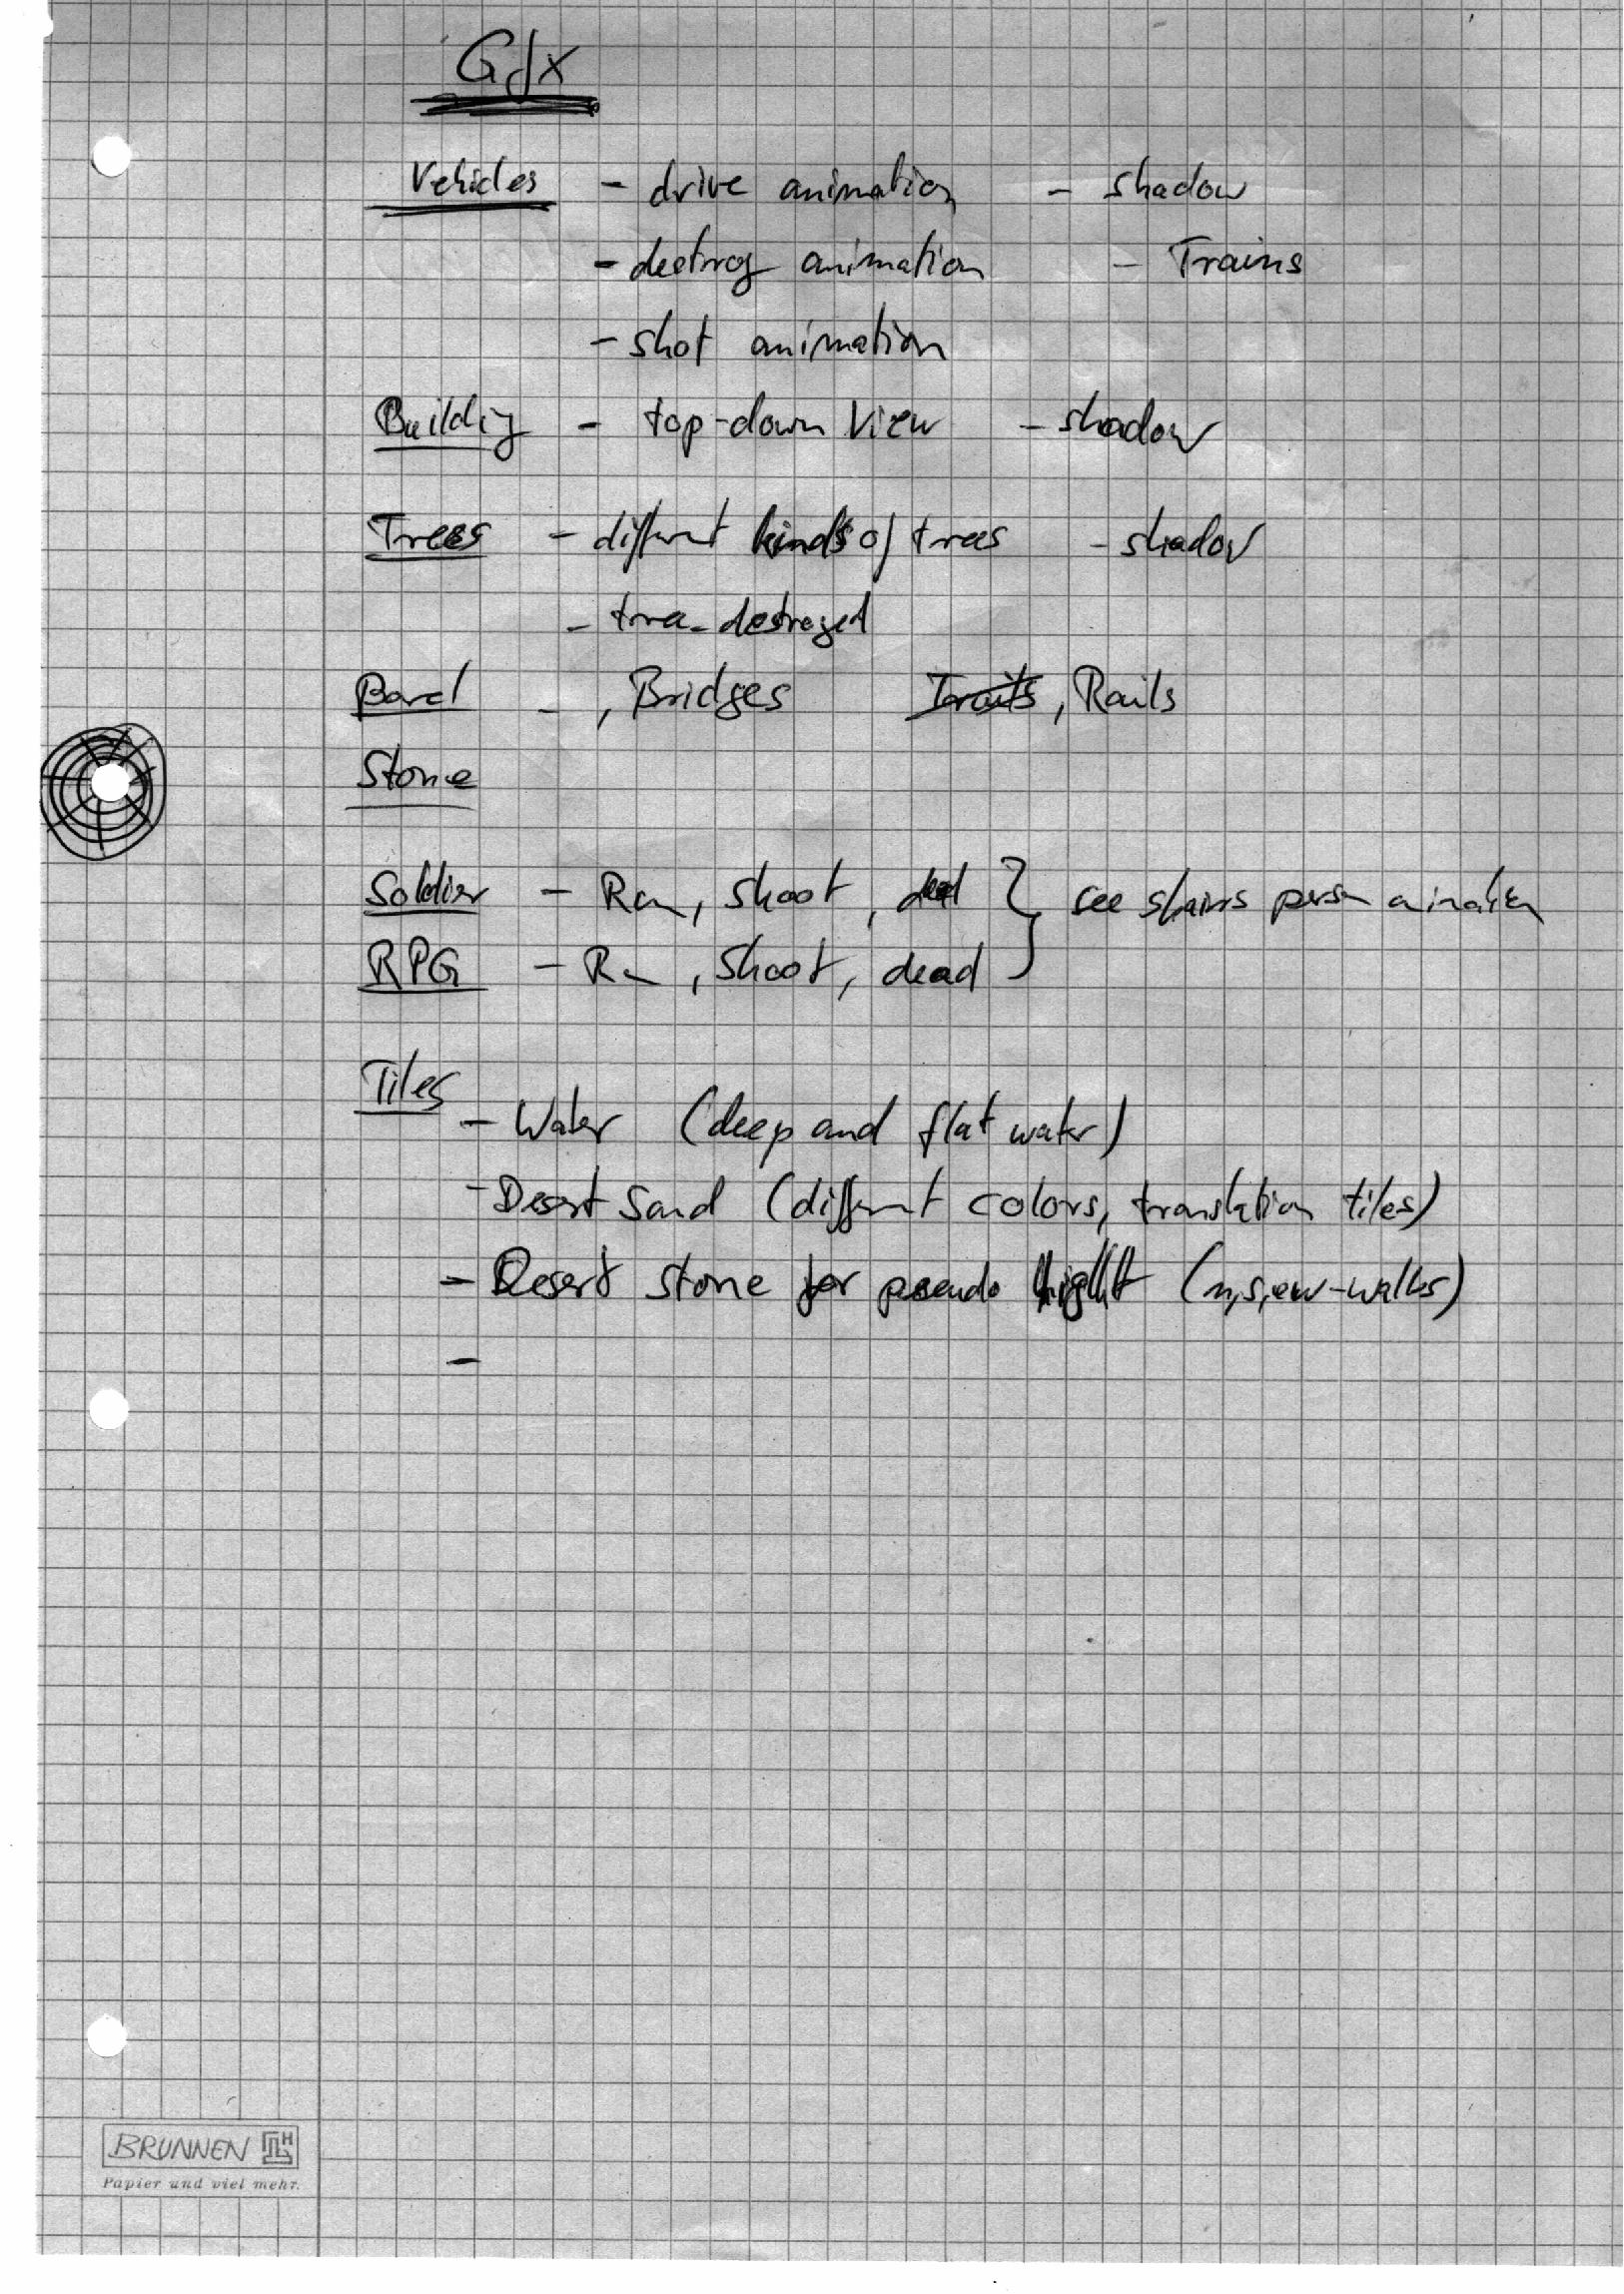 Gfx
Vehicles - drive animation - shadow
- destroy animation - Trains
- shot animation
Buildig - top-down View - shadow
Trees - different kinds of trees - shadow
- tree destroyed
- , Bridges Trails, Rails
Stone
Soldier - Run, shoot, dead } see persn animation
RPG - Run, Shoot, dead
Tiles
- Water (deep and flat water)
- Desert Sand (different colors, translation tiles)
- Desert stone for pseudo hight (n,s,ew-walls)
-
BRUNNEN
Papier und viel mehr.